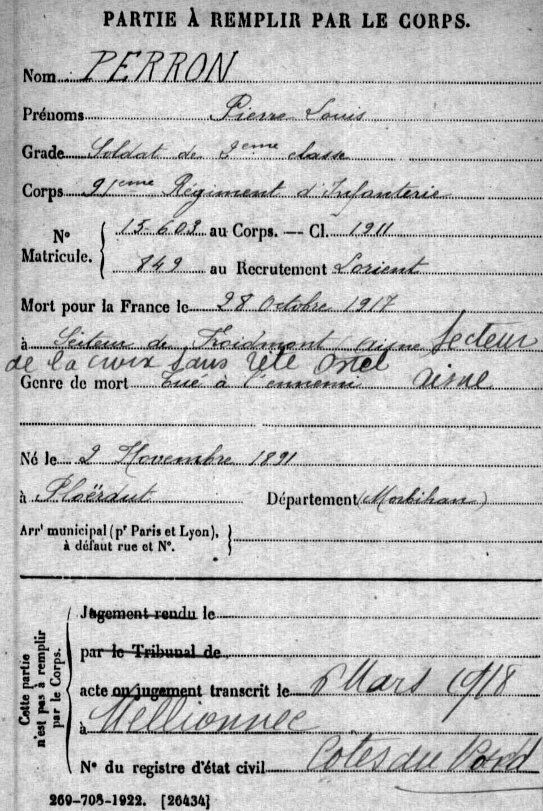 PARTIE À REMPLIR PAR LE CORPS.
Nom PERRON
Prénoms Pierre Louis
Grade Soldat de 2eme classe
Corps 91eme Régiment d'Infanterie
No Matricule. 15-603 au Corps. — Cl. 1911
849 au Recrutement Lorient
Mort pour la France le 28 Octobre 1917
à Secteur de Froidmont Aisne Secteur
de la croix sans tête Ostel
Genre de mort Tué à l'ennemi Aisne
Né le 2 Novembre 1891
à Ploërdut Département (Morbihan)
Arrt municipal (pr Paris et Lyon),
à défaut rue et No.
Jugement rendu le
par le Tribunal de
acte ou jugement transcrit le 6 Mars 1918
à Mellionnec
Cotes du Nord
No du registre d'état civil
Cette partie
n'est pas à remplir
par le Corps.
269-708-1922. [26434]